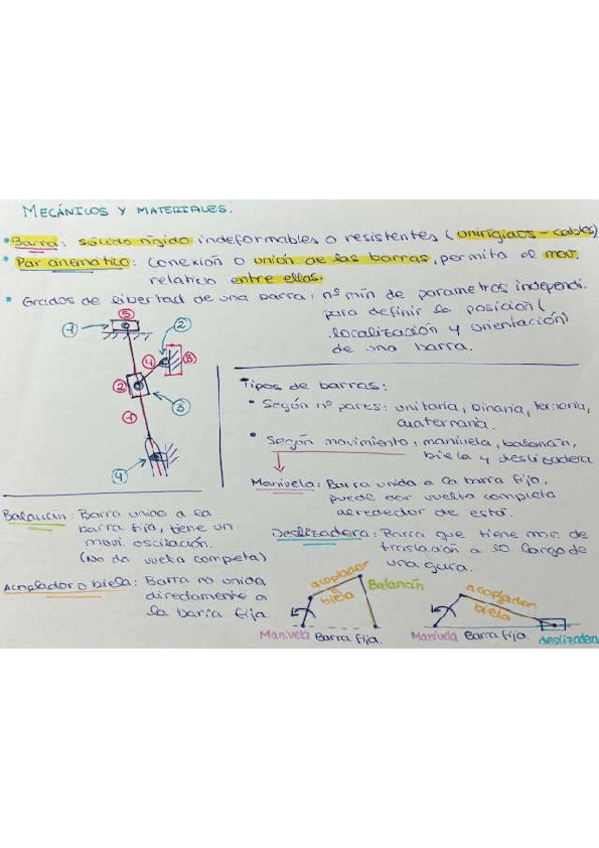 MECÁNICOS Y MATERIALES.
• Barra: sólido rígido indeformables o resistentes (unirigidos - cables)
• Par cinemático: conexión o unión de las barras, permite el mov.
relativo entre ellas.
• Grados de libertad de una barra: nº mín de parametros independi.
para definir la posición (
localización y orientación)
de una barra.
5
1
2
4
3
2
3
1
4
Tipos de barras:
• Según nº pares: unitaria, binaria, ternaria,
cuaternaria.
• Según movimiento: manivela, balancín,
biela y deslizadera
Manivela: Barra unida a la barra fija,
puede dar vuelta completa
alrededor de esta.
Balancín: Barra unida a la
barra fija, tiene un
movi. oscilación.
(No da vuelta competa)
Deslizadera: Barra que tiene mov. de
traslación a lo largo de
una guía.
Acoplador o biela: Barra no unida
directamente a
la barra fija.
acoplador
o
biela
Balancín
Manivela Barra fija.
acoplador
biela
Manivela Barra fija. deslizadera